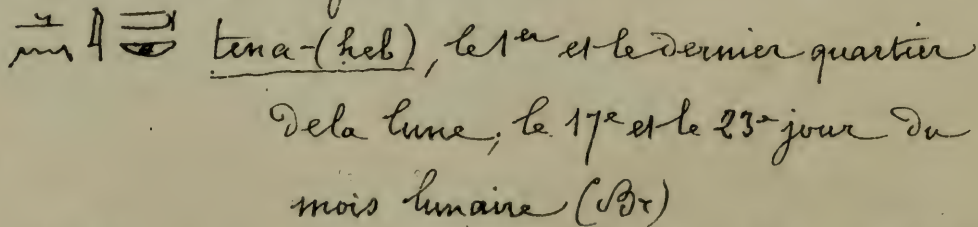 tena-(heb), le 1er et le dernier quartier
de la lune; le 17e et le 23e jour du
mois lunaire (Br)